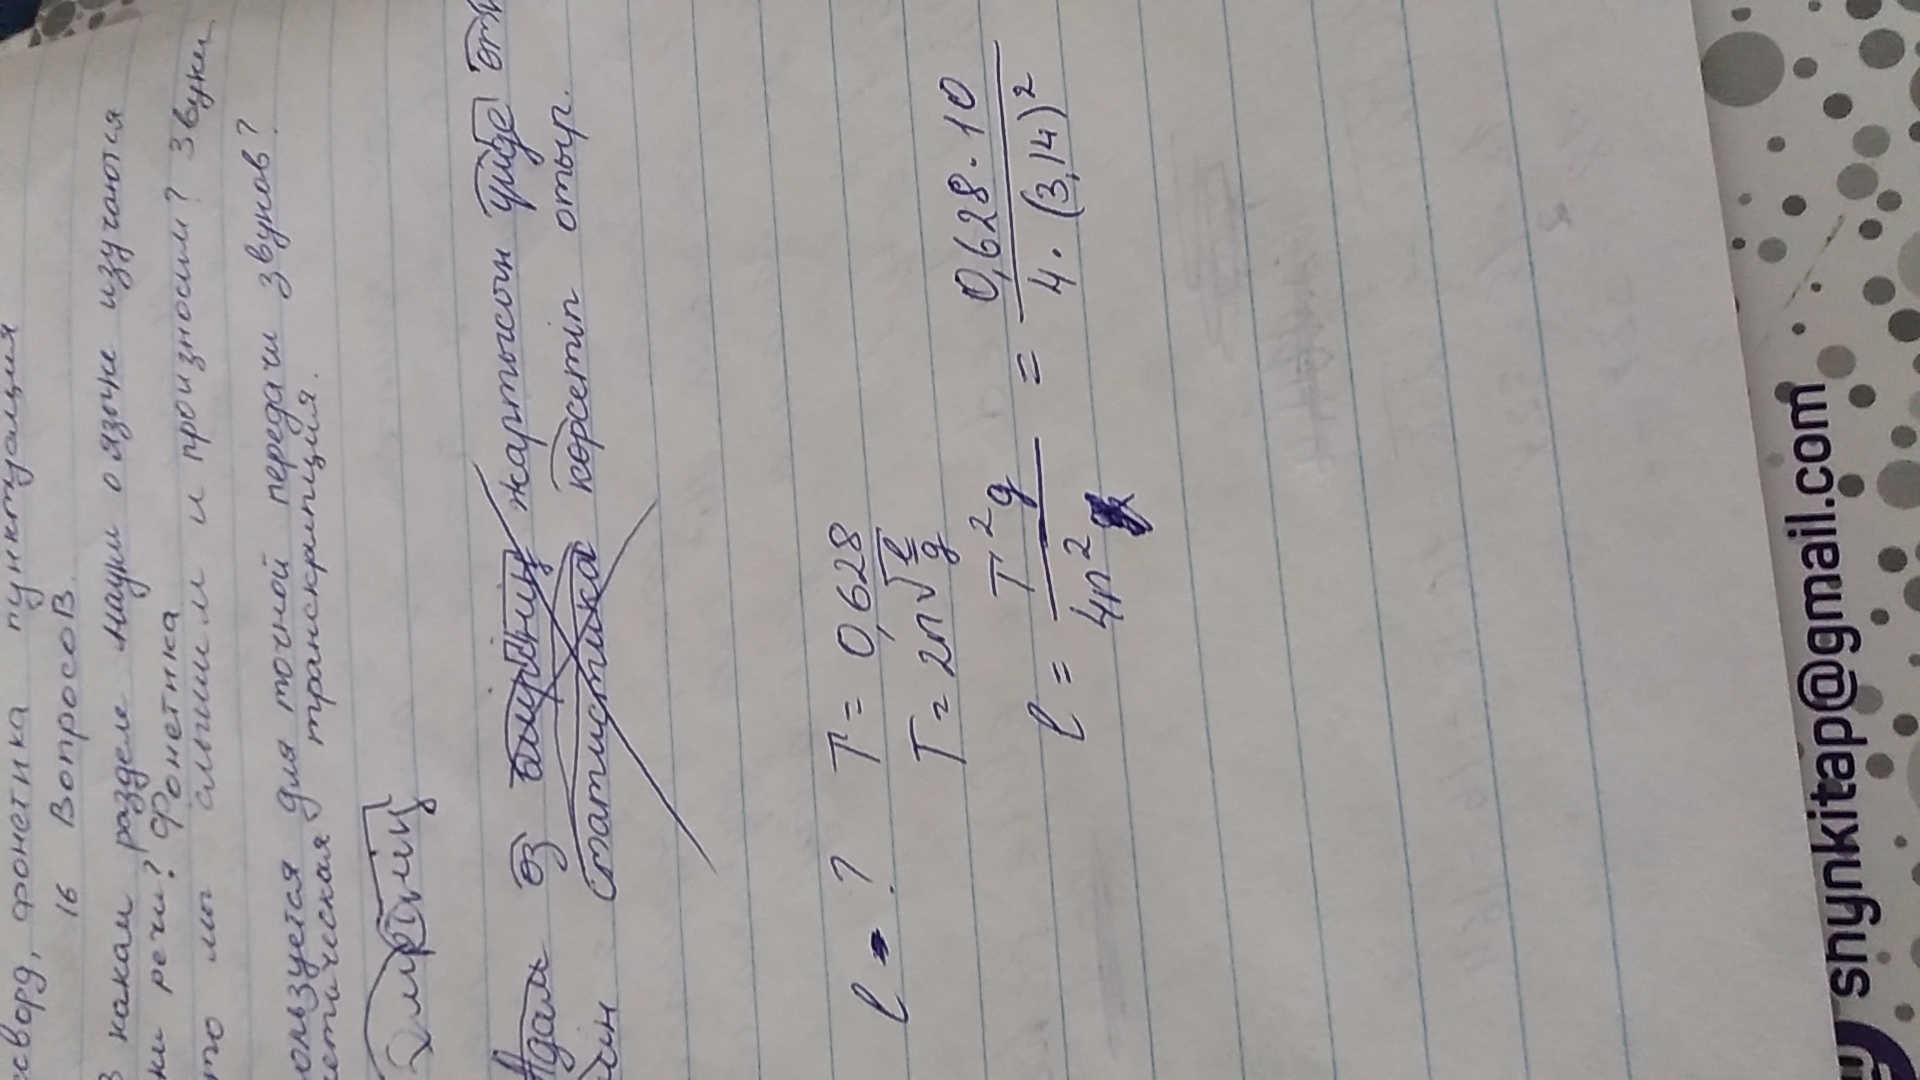 фонетика пунктуация
16 ВопросоВ
В каком разделе науки о языке изучаются
речи? Фонетика
мы слышим и произносим? Звуки
для точной передачи звуков?
транскрипция.
Өмірдің
Адам өз өмірінің жартысын үйде
статистика көрсетіп отыр.
l = ? T = 0,628
T = 2π√(l/g)
l = T²g / 4π² = 0,628 · 10 / 4 · (3,14)²
shynkitap@gmail.com